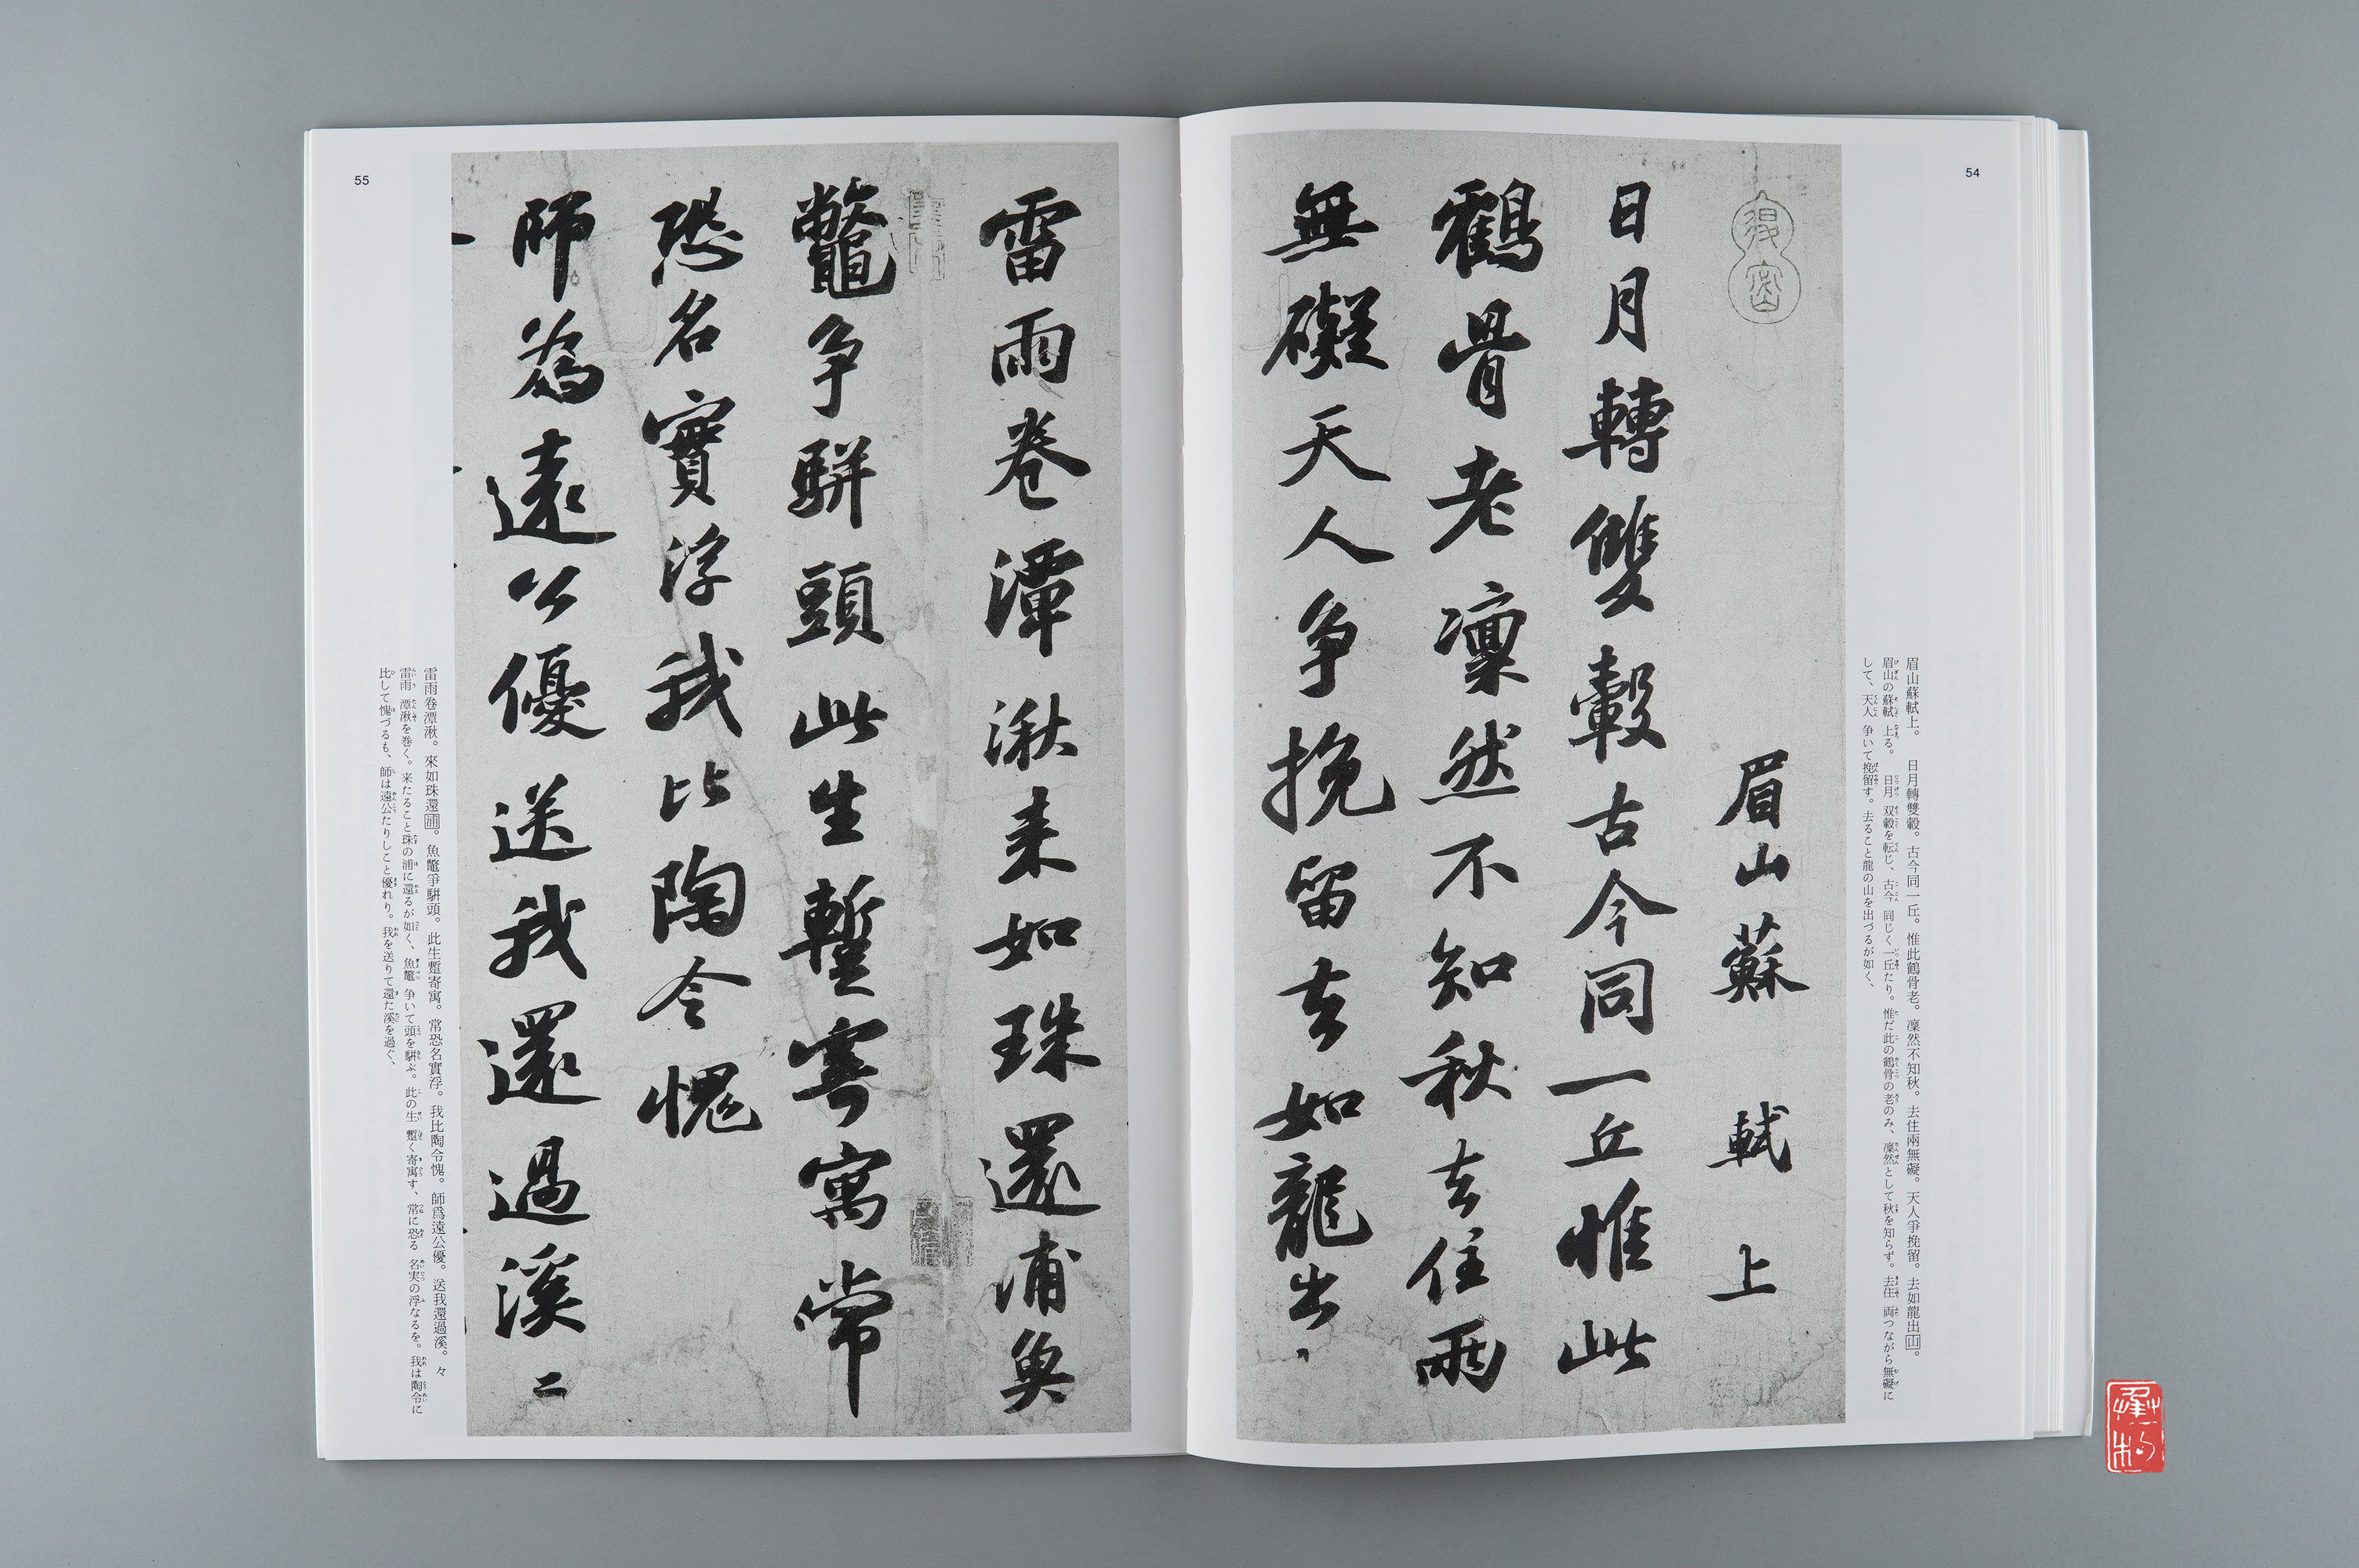 54
眉山蘇軾上。　日月轉雙轂。古今同一丘。惟此鶴骨老。凜然不知秋。去住兩無礙。天人爭挽留。去如龍出山。
眉山の蘇軾　上る。　日月　双轂を転じ、古今　同じく一丘たり。惟だ此の鶴骨の老のみ、凜然として秋を知らず。去住　両つながら無礙に
して、天人　争いて挽留す。去ること龍の山を出づるが如く、
眉山蘇軾上
日月轉雙轂古今同一丘惟此
鶴骨老凜然不知秋去住兩
無礙天人争挽留去如龍出
雷雨卷潭湫来如珠還浦魚
鼈争駢頭此生蹔寄寓常
恐名實浮我比陶令愧
師為遠公優送我還過溪二
雷雨卷潭湫。來如珠還浦。魚鼈爭駢頭。此生蹔寄寓。常恐名實浮。我比陶令愧。師爲遠公優。送我還過溪。々
雷雨　潭湫を巻く。来たること珠の浦に還るが如く、魚鼈　争いて頭を駢ぶ。此の生　蹔く寄寓す、常に恐る　名実の浮なるを。我は陶令に
比して愧づるも、師は遠公たりしこと優れり。我を送りて還た溪を過ぐ、
55